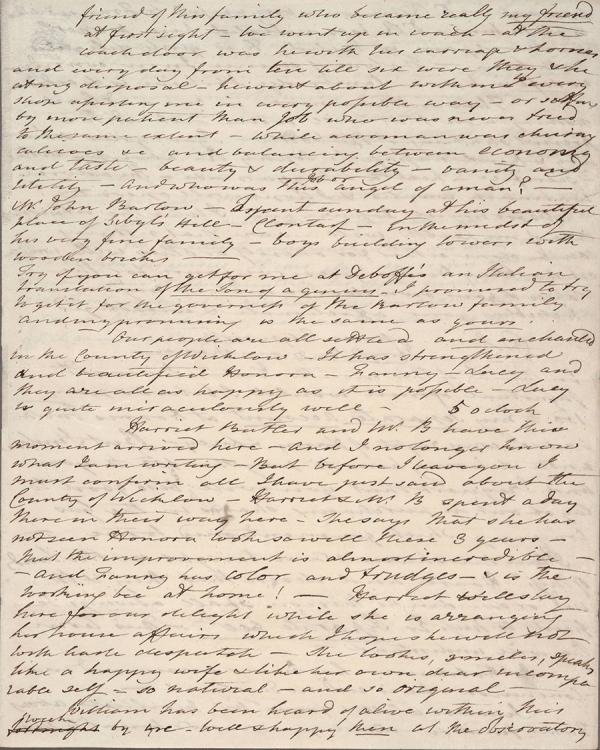 friend of this family who became really my friend
at first sight - We went up in coach - at the
coach door was he with his carriage & horses
and every day from ten till six were they & he
at my disposal - he went about with me to every
shop assisting me in every possible way - or sitting
by more patient than Job who was never tried
to the same extent - while a woman was chusing
calicoes &c and balancing between economy
and taste - beauty & durability - vanity and
utility - And who was this Job or angel of a man? -
Mr. John Barlow - I spent sunday at his beautiful
place of Sybil Hill - Clontarf - In the midst of
his very fine family - boys building towers with
wooden bricks -
Try if you can get for me at Deboffe's an Italian
translation of the Son of a genius. I promised to try
to get it for the governess of the Barlow family
and my promising is the same as yours
Our people are all settled and enchanted
in the County of Wicklow - It has strengthened
and beautified Honora - Fanny - Lucy and
they are all as happy as it is possible - Lucy
is quite miraculously well - 5 oclock
Harriet Butler and Mr. B have this
moment arrived here - and I no longer know
what I am writing - But before I leave you I
must confirm all I have just said about the
County of Wicklow - Harriet & Mr. B spent a day
there in their way here - She says that she has
not seen Honora look so well these 3 years -
that the improvement is almost incredible -
- and Fanny has color and trudges - & is the
working bee at home! - Harriet will stay
here for our delight while she is arranging
her house affairs which I hope she will not
with haste despatch - She looks, smiles, speaks
like a happy wife & like her own dear incompa
rable self - so natural - and so original -
William has been heard of alive within this
week
fortnight by we - well & happy then at the observatory